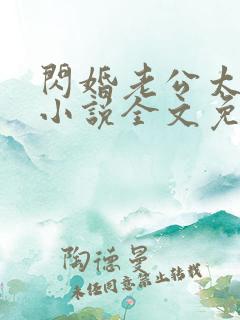 閃婚老公太
小說全文免
陶德曼
未經同意禁止轉載